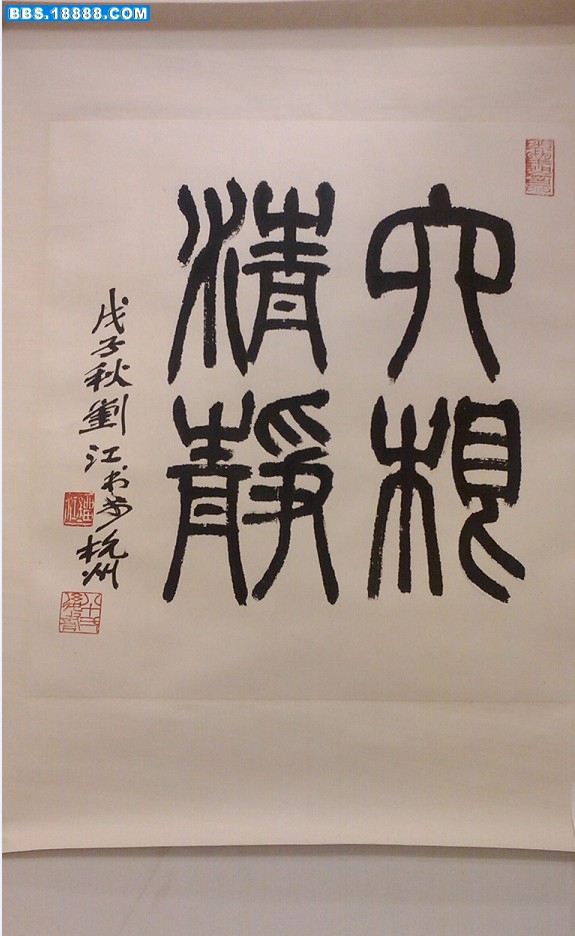 BBS.18888.COM
六根
清靜
戊子秋劉江书於杭州